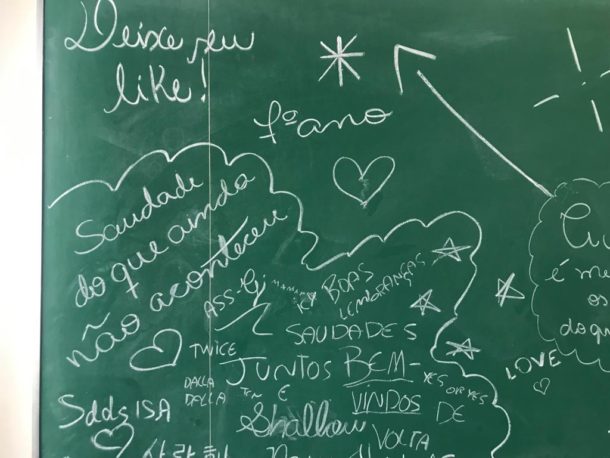 Deixe seu
like!
1º ano
Saudade
do que ainda
não aconteceu
ASS: Gi
BOAS
LEMBRANÇAS
SAUDADES
TWICE
JUNTOS
BEM-
VINDOS
DE
VOLTA
YES OR YES
DALLA
DALLA
TEN
E
Shallow
Sdds ISA
사랑
é me
os
do que
LOVE